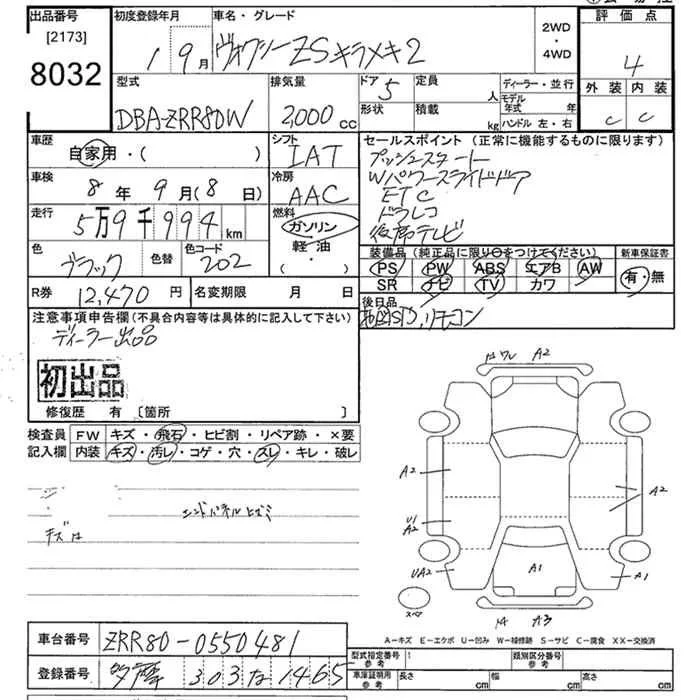 出品番号
[2173]
8032
初度登録年月
1 9月
車名・グレード
ヴォクシーZSキラメキ2
2WD
・
4WD
評価点
4
外装 内装
C C
型式
DBA-ZRR80W
排気量
2,000 cc
ドア 5
形状
定員
人
積載
kg
ディーラー・並行
モデル年式 年
ハンドル 左・右
車歴
自家用・( )
シフト
IAT
車検
8年 9月(8日)
冷房
AAC
走行
5万9千994 km
燃料
ガソリン
軽・油
( ・ )
色
ブラック
色替
色コード
202
R券 12,470 円
名変期限 月 日
セールスポイント(正常に機能するものに限ります)
プッシュスタート
Wパワースライドドア
ETC
ドラレコ
後席テレビ
装備品(純正品に限り○をつけてください)
PS PW ABS エアB AW
SR ナビ TV カワ
新車保証書
有・無
後日品
リモコン
注意事項申告欄(不具合内容等は具体的に記入して下さい)
ディーラー出品
初出品
修復歴 有〔箇所 〕
検査員記入欄
FW キズ・飛石・ヒビ割・リペア跡・×要
内装 キズ・汚レ・コゲ・穴・スレ・キレ・破レ
キズ
エンドパネルヒズミ
A2
A2
U1
A2
UA2
A2
A1
A1
A3
スペア
A-キズ E-エクボ U-凹み W-補修跡 S-サビ C-腐食 XX-交換済
車台番号 ZRR80-0550481
登録番号 多摩 303 な 1465
型式指定番号
参考
類別区分番号
参考
車庫証明用
参考
長さ cm 幅 cm 高さ cm